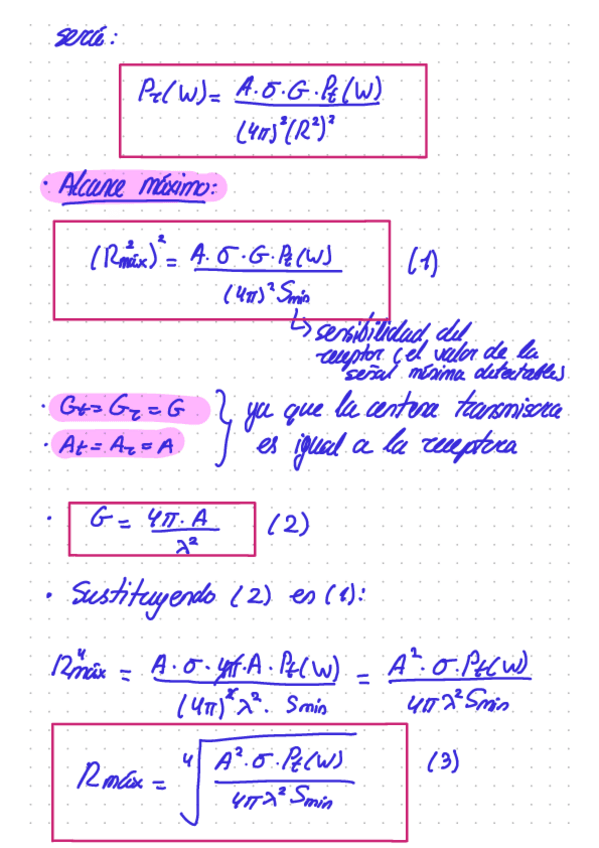 sería:
Pr(W) = A·σ·G·Pt(W) / (4π)²(R²)²
· Alcance máximo:
(R²máx)² = A·σ·G·Pt(W) / (4π)² Smin (1)
↳ sensibilidad del
receptor (el valor de la
señal mínima detectable)
· Gt = Gr = G } ya que la antena transmisora
· At = Ar = A es igual a la receptora
· G = 4π·A / λ² (2)
· Sustituyendo (2) en (1):
R⁴máx = A·σ·4π·A·Pt(W) / (4π)²λ²·Smin = A²·σ·Pt(W) / 4πλ²Smin
Rmáx = ⁴√(A²·σ·Pt(W) / 4πλ²Smin) (3)